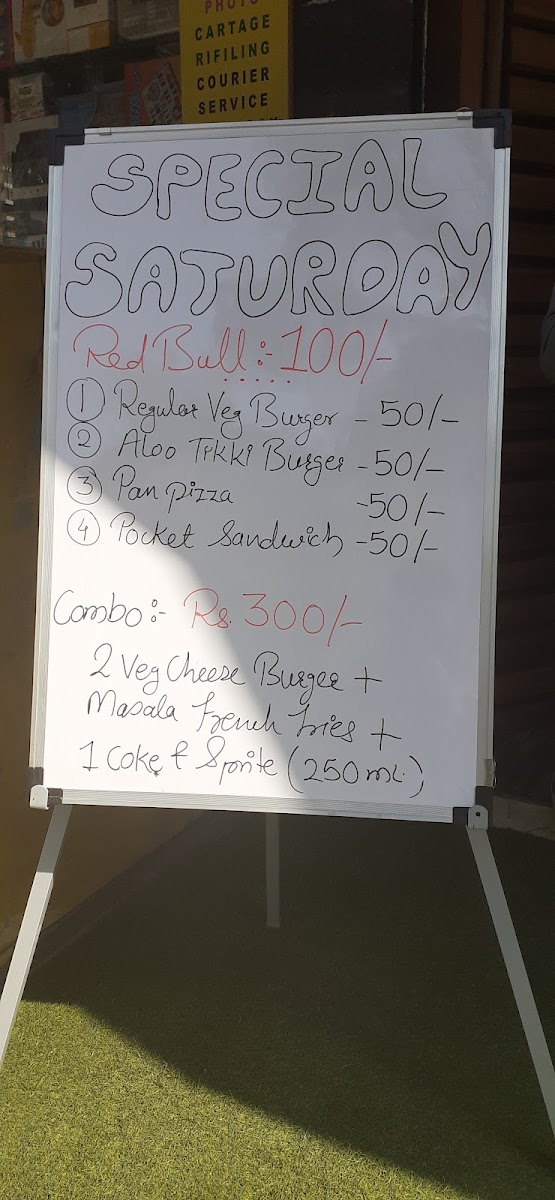 PHOTO
CARTAGE
RIFILING
COURIER
SERVICE
SPECIAL
SATURDAY
Red Bull :- 100/-
1 Regular Veg Burger - 50/-
2 Aloo Tikki Burger - 50/-
3 Pan pizza -50/-
4 Pocket Sandwich -50/-
Combo:- Rs. 300/-
2 Veg Cheese Burger +
Masala French Fries +
1 Coke & Sprite (250 ml.)